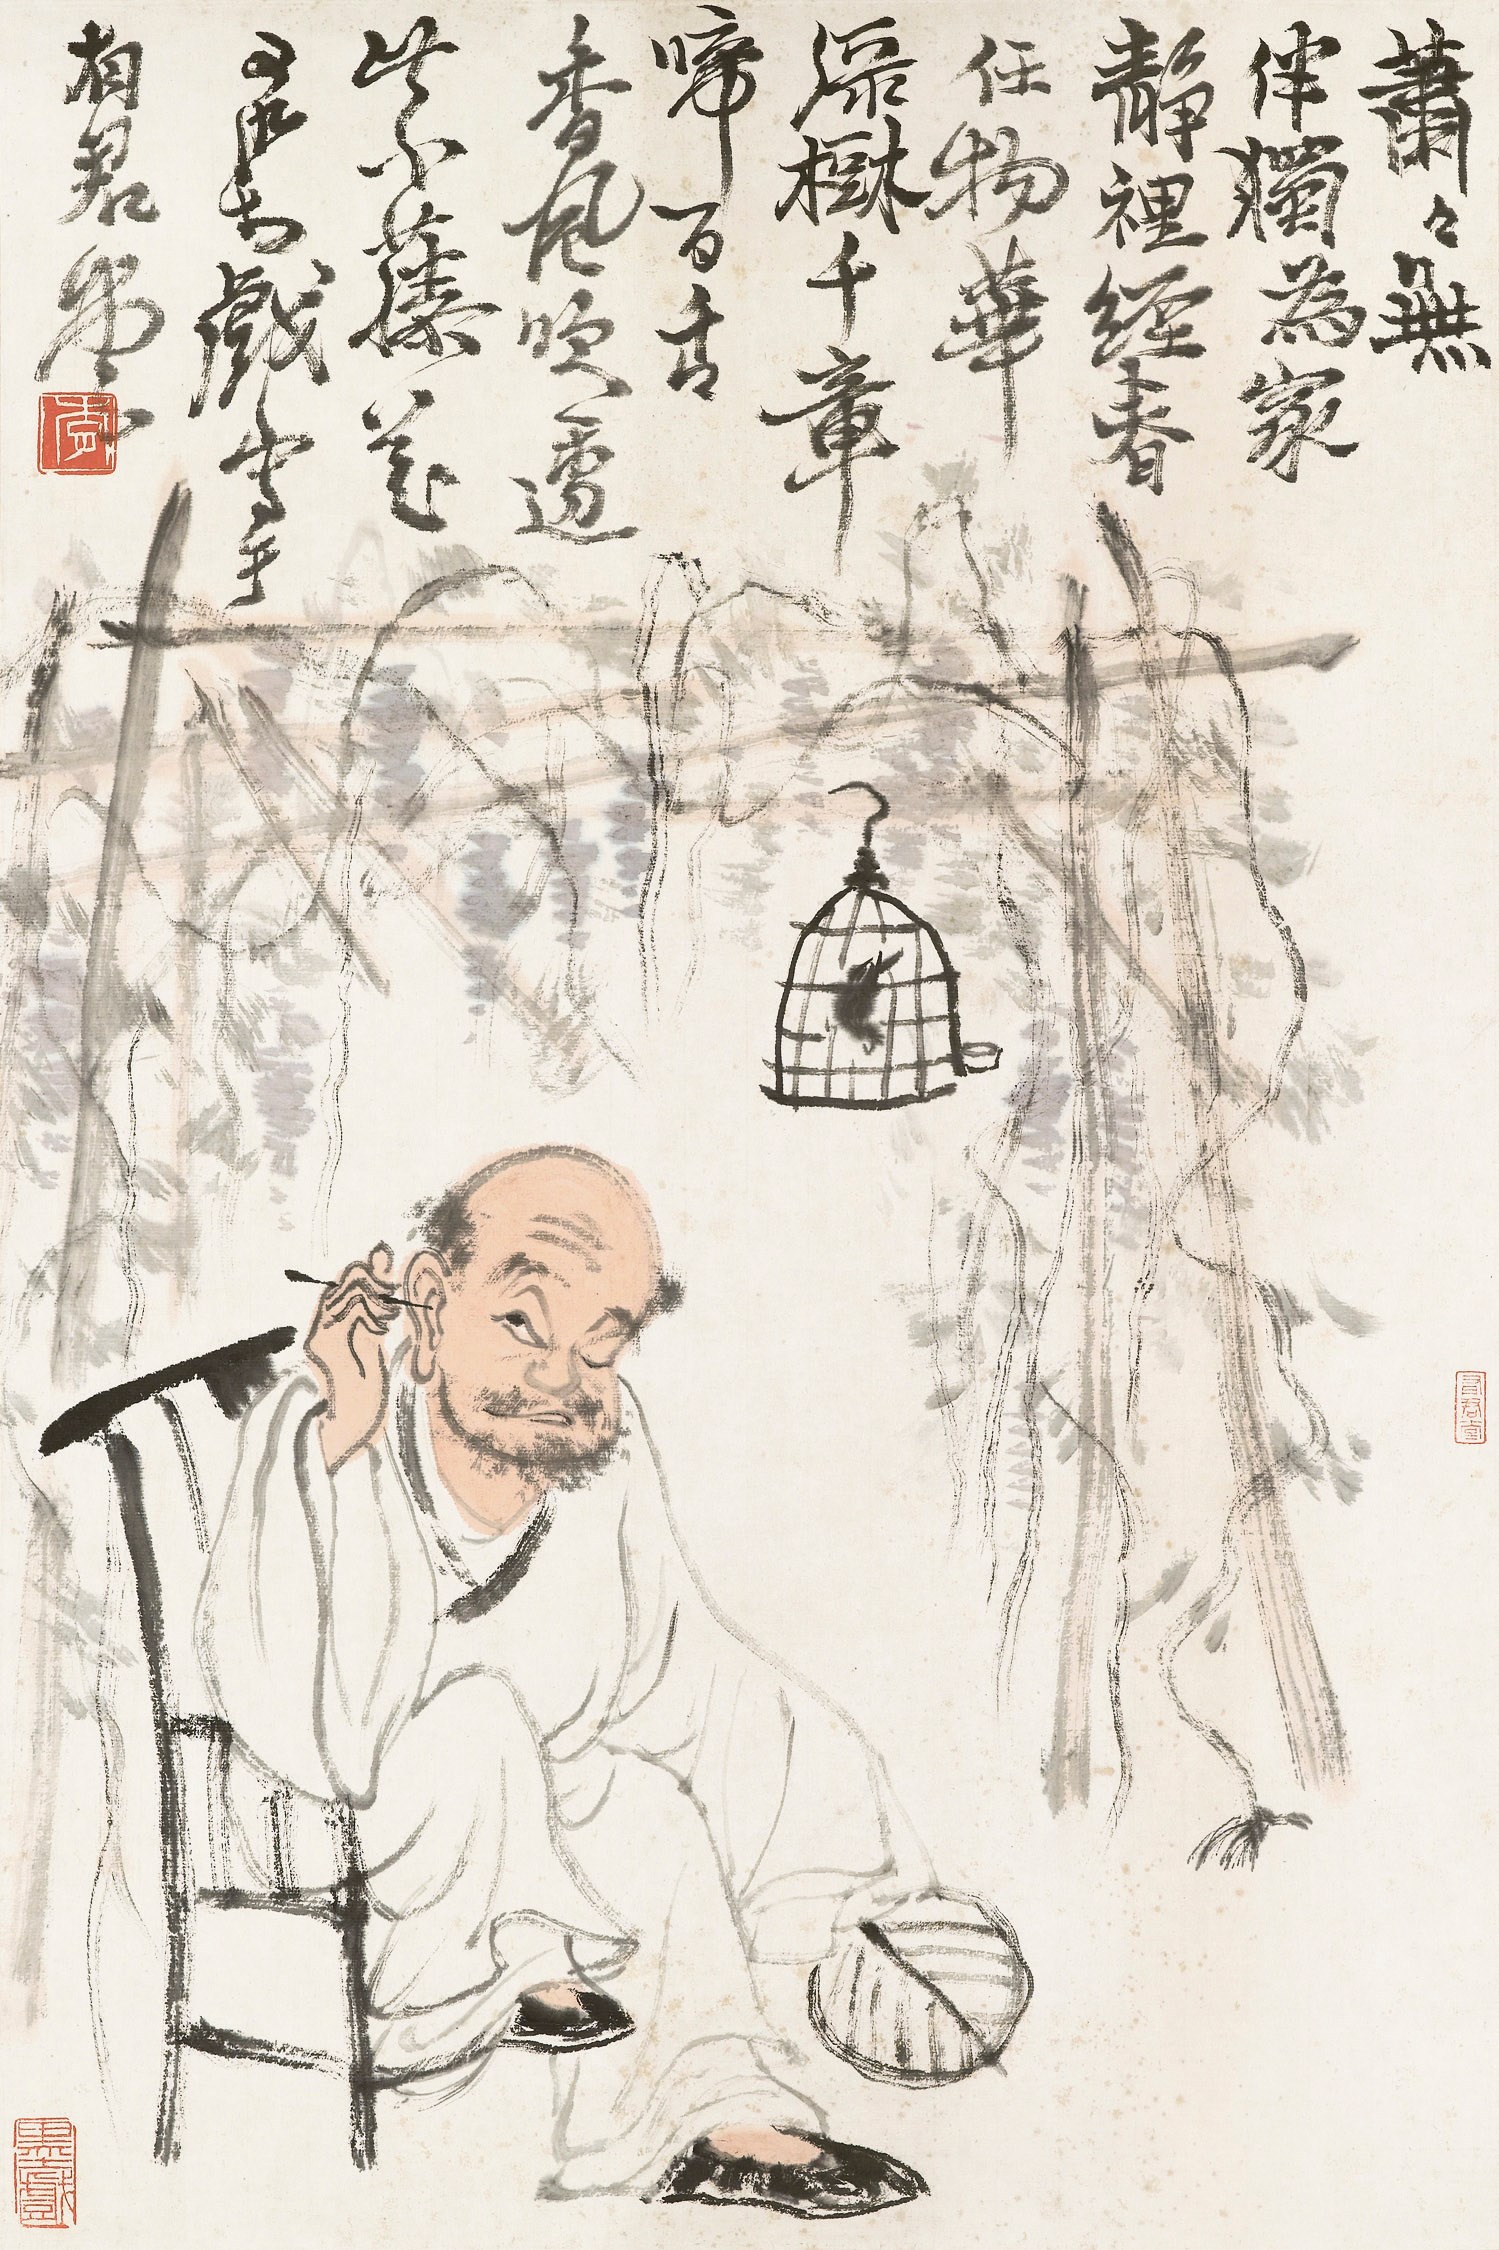 蕭々無
伴獨為家
靜裡經春
任物華
綠樹千章
啼百舌
香風吹遍
紫藤花
戲寫于
君堂
墨戲